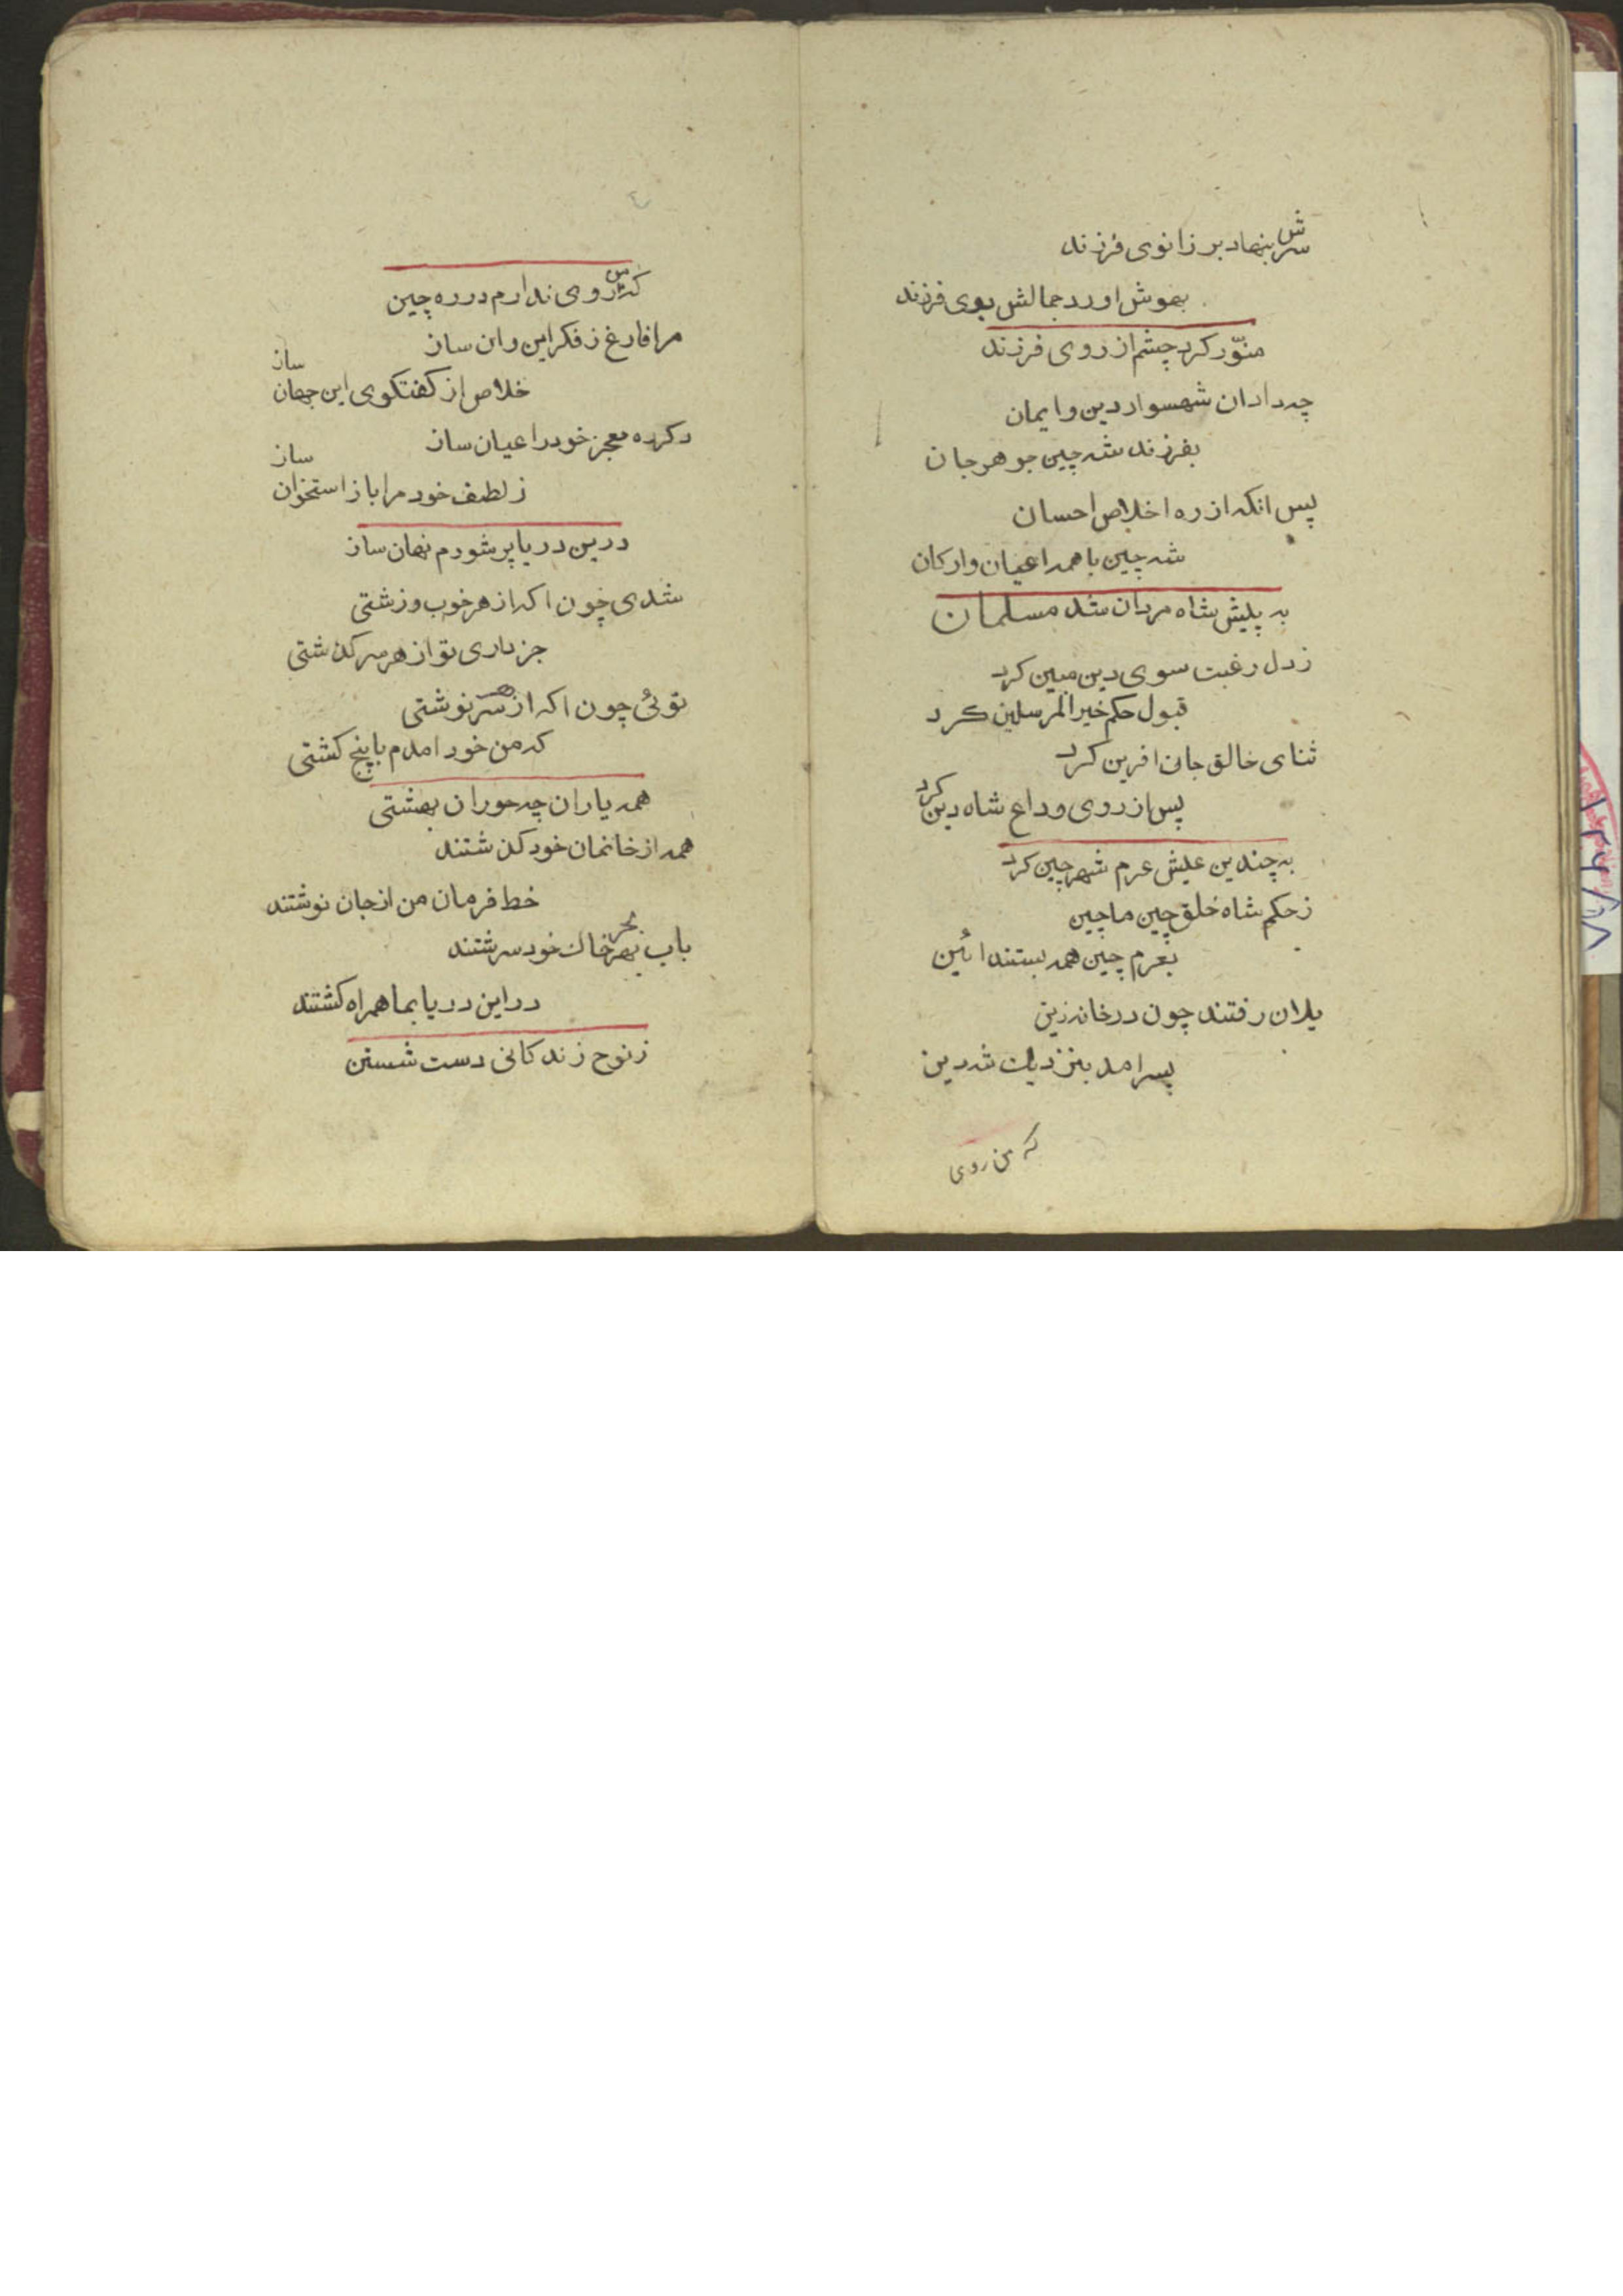 سرش بنهاد بر زانوی فرزند
بهوش اورد جمالش بوی فرزند
منوّر کرد چشم از روی فرزند
چه داد ان شهسوار دین و ایمان
بفرزند شه چین جوهر جان
پس انکه از ره اخلاص احسان
شه چین با همه اعیان و ارکان
به پیش شاه مردان شد مسلمان
ز دل رغبت سوی دین مبین کرد
قبول حکم خیر المرسلین کرد
ثنای خالق جان افرین کرد
پس از روی وداع شاه دین کرد
به چندین عیش عزم شهر چین کرد
ز حکم شاه خلق چین ماچین
بعزم چین همه بستند ائین
یلان رفتند چون در خانه زین
پسر امد بنزدیک شه دین
که من روی
که من روی ندارم در ره چین
مرا فارغ ز فکر این و ان ساز
خلاص از کفتکوی این جهان ساز
دکره معجز خود را عیان ساز
ز لطف خود مرا باز استخوان ساز
درین دریا پر شورم نهان ساز
شدی چون اکه از هر خوب و زشتی
خبر داری تو از هر سر کذشتی
توئی چون اکه از هر سرنوشتی
که من خود امدم با پنج کشتی
همه یاران چه حوران بهشتی
همه از خانمان خود کذشتند
خط فرمان من از جان نوشتند
باب بحر خاک خود سرشتند
در این دریا بما همراه کشتند
ز نوح زندکانی دست شستن